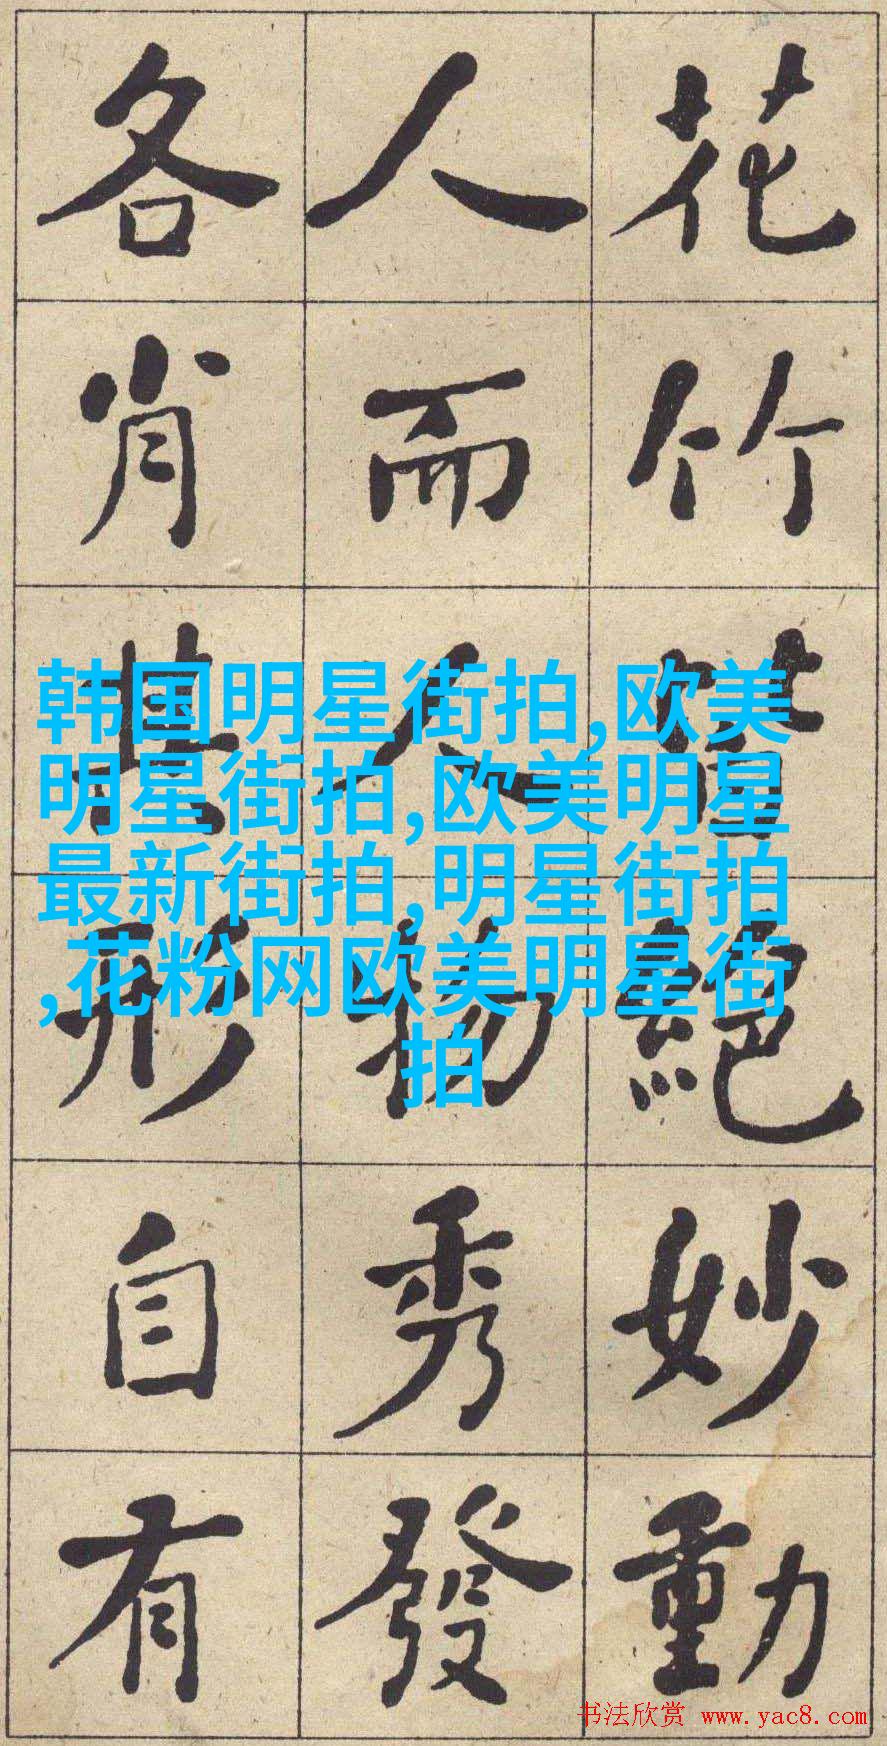 花竹絶妙動
人而人物秀發
各肖其形自有
韩国明星街拍,欧美
明星街拍,欧美明星
最新街拍,明星街拍
,花粉网欧美明星街
拍
书法欣赏 www.yac8.com